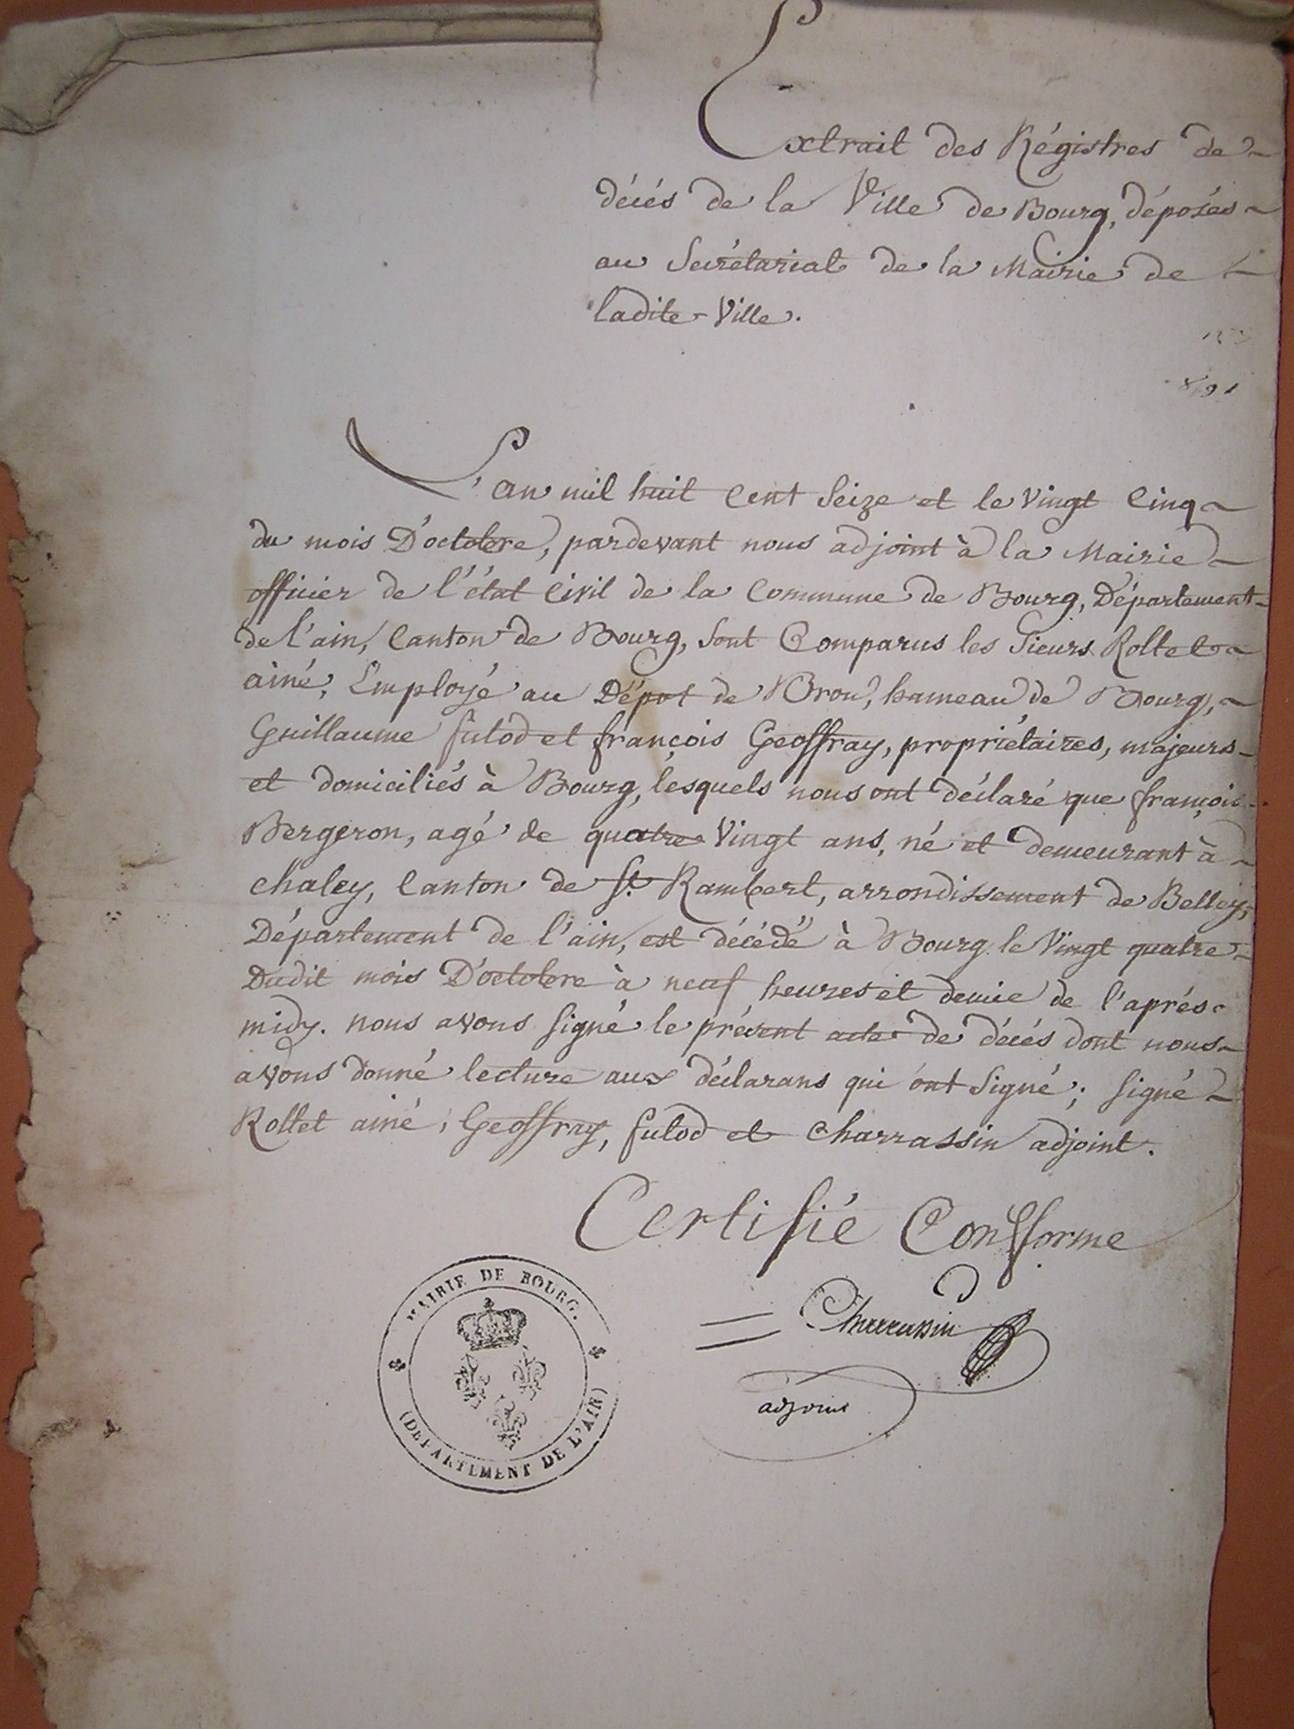 Extrait des Régistres de
décés de la Ville de Bourg, déposés
au Secrétariat de la Mairie de
ladite Ville.
L'an mil huit Cent Seize et le Vingt Cinq
du mois D'octobre, pardevant nous adjoint à la Mairie
officier de l'état Civil de la Commune de Bourg, Département
de l'ain, Canton de Bourg, sont Comparus les Sieurs Rollet
ainé, Employé au Dépot de Brou, hameau de Bourg,
Guillaume futod et françois Geoffray, propriétaires, majeurs
et domiciliés à Bourg, lesquels nous ont déclaré que françois
Bergeron, agé de quatre Vingt ans, né et demeurant à
chaley, Canton de St. Rambert, arrondissement de Belley,
Département de l'ain, est décédé à Bourg le Vingt quatre
Dudit mois D'octobre à neuf heures et demie de l'aprés
midy. nous avons Signé le présent acte de décés dont nous
avons donné lecture aux déclarans qui ont Signé; Signé
Rollet ainé, Geoffray, futod et Charrassin adjoint.
Certifié Conforme
Charrassin
adjoint
MAIRIE DE BOURG.
(DEPARTEMENT DE L'AIN)